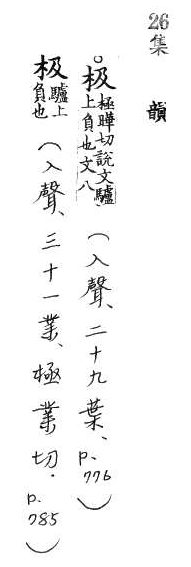 26集 韻
○极極曄切說文驢上負也文八(入聲、二十九葉、p.776)
极驢上負也(入聲、三十一業、極業切.p.785)